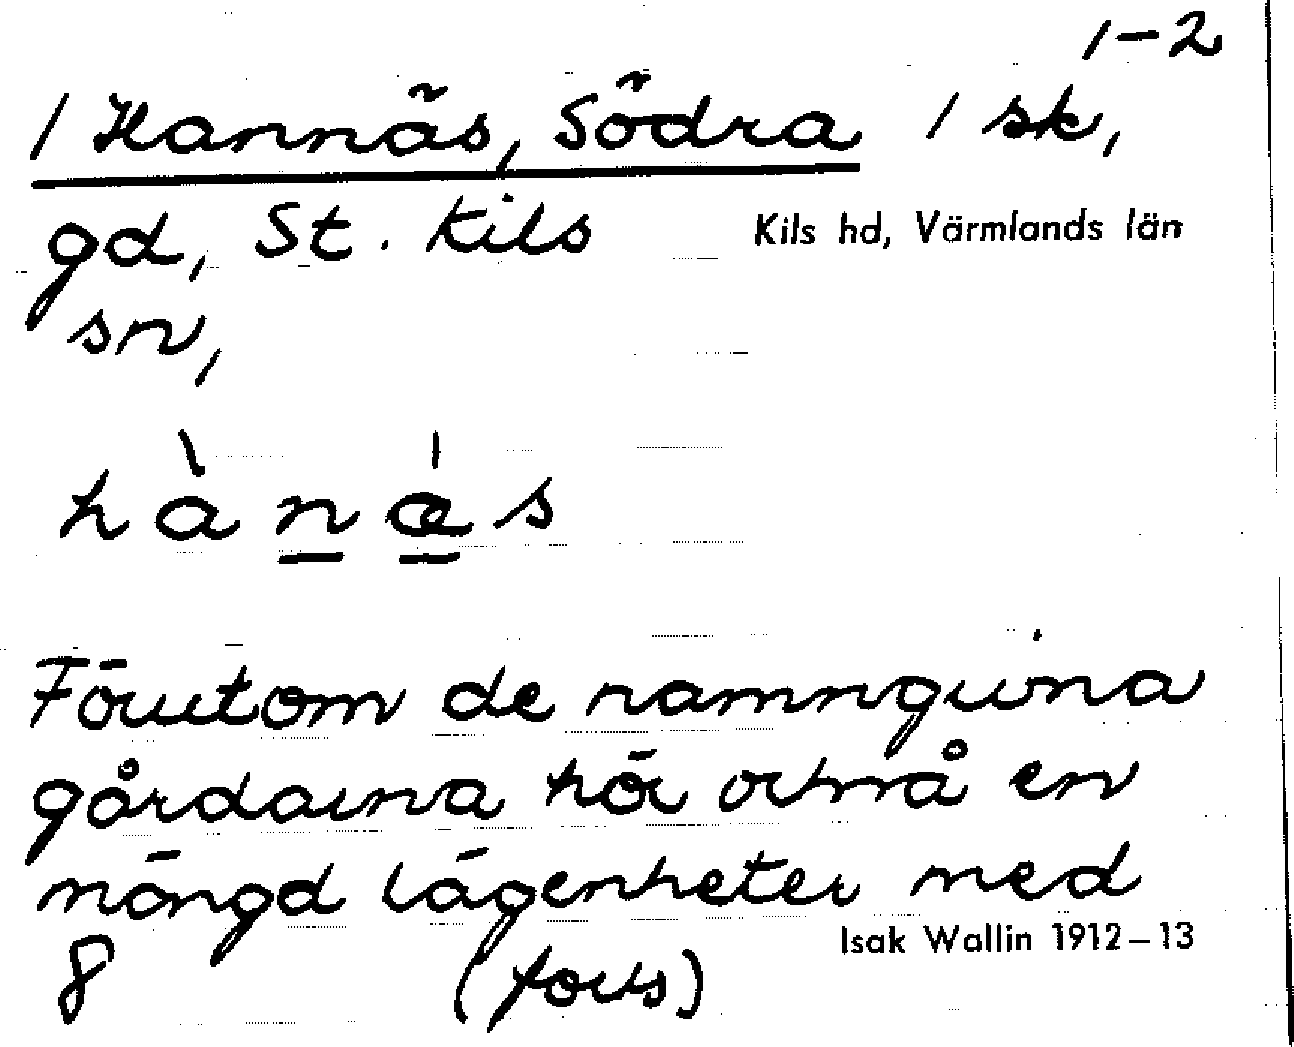 1-2
/ Hannäs, Södra / sk,
gd, St. Kils Kils hd, Värmlands län
sn,
hànæ̀s
Förutom de namngivna
gårdarna hör också en
mängd lägenheter med
8 (forts)
Isak Wallin 1912–13